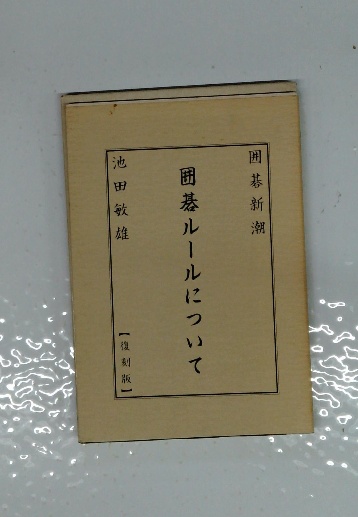 囲碁新潮
囲碁ルールについて
池田敏雄
【復刻版】